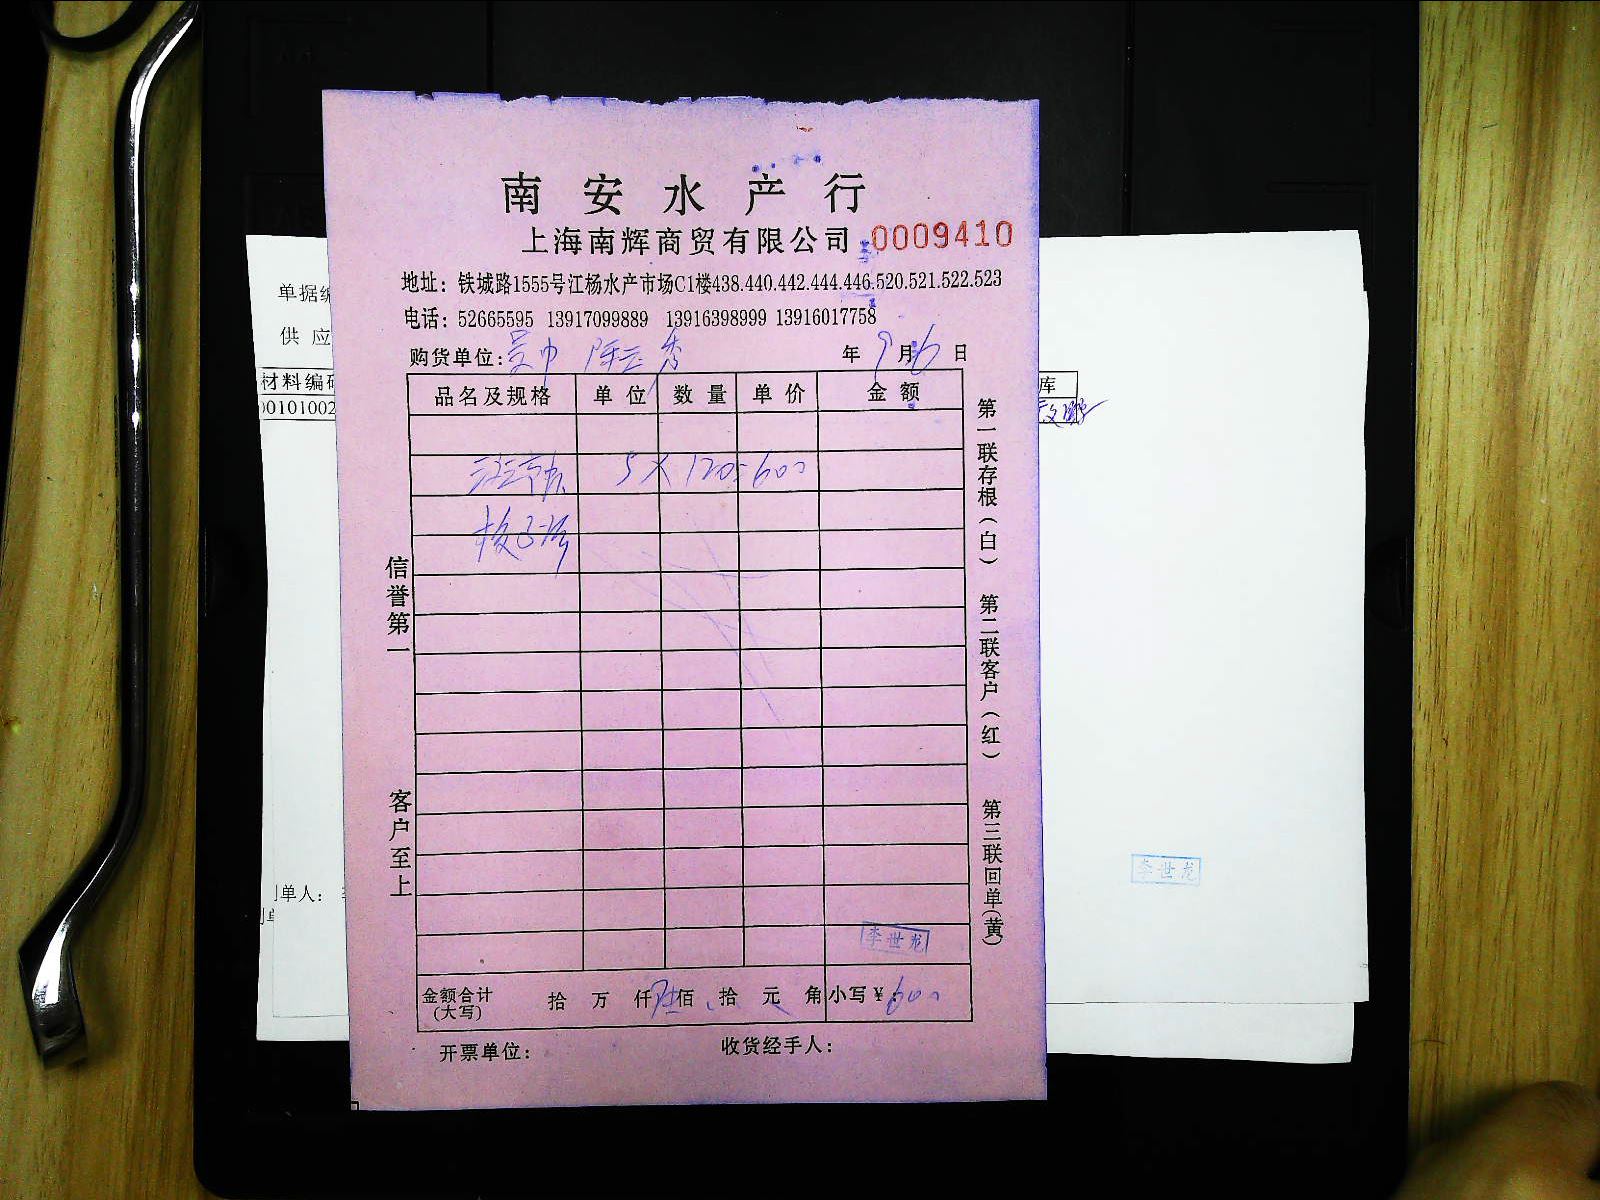 南安水产行
上海南辉商贸有限公司 0009410
地址：铁城路1555号江杨水产市场C1楼438.440.442.444.446.520.521.522.523
电话：52665595 13917099889 13916398999 13916017758
购货单位： 年 9 月 6 日
品名及规格 单位 数量 单价 金额
5 X 120 = 600
李世龙
金额合计(大写) 拾 万 仟 陆 佰 拾 元 角 小写¥ 600
开票单位： 收货经手人：
信誉第一
客户至上
第一联存根（白）
第二联客户（红）
第三联回单（黄）
单据编
供 应
材料编码
00101002
库
制单人：
李世龙